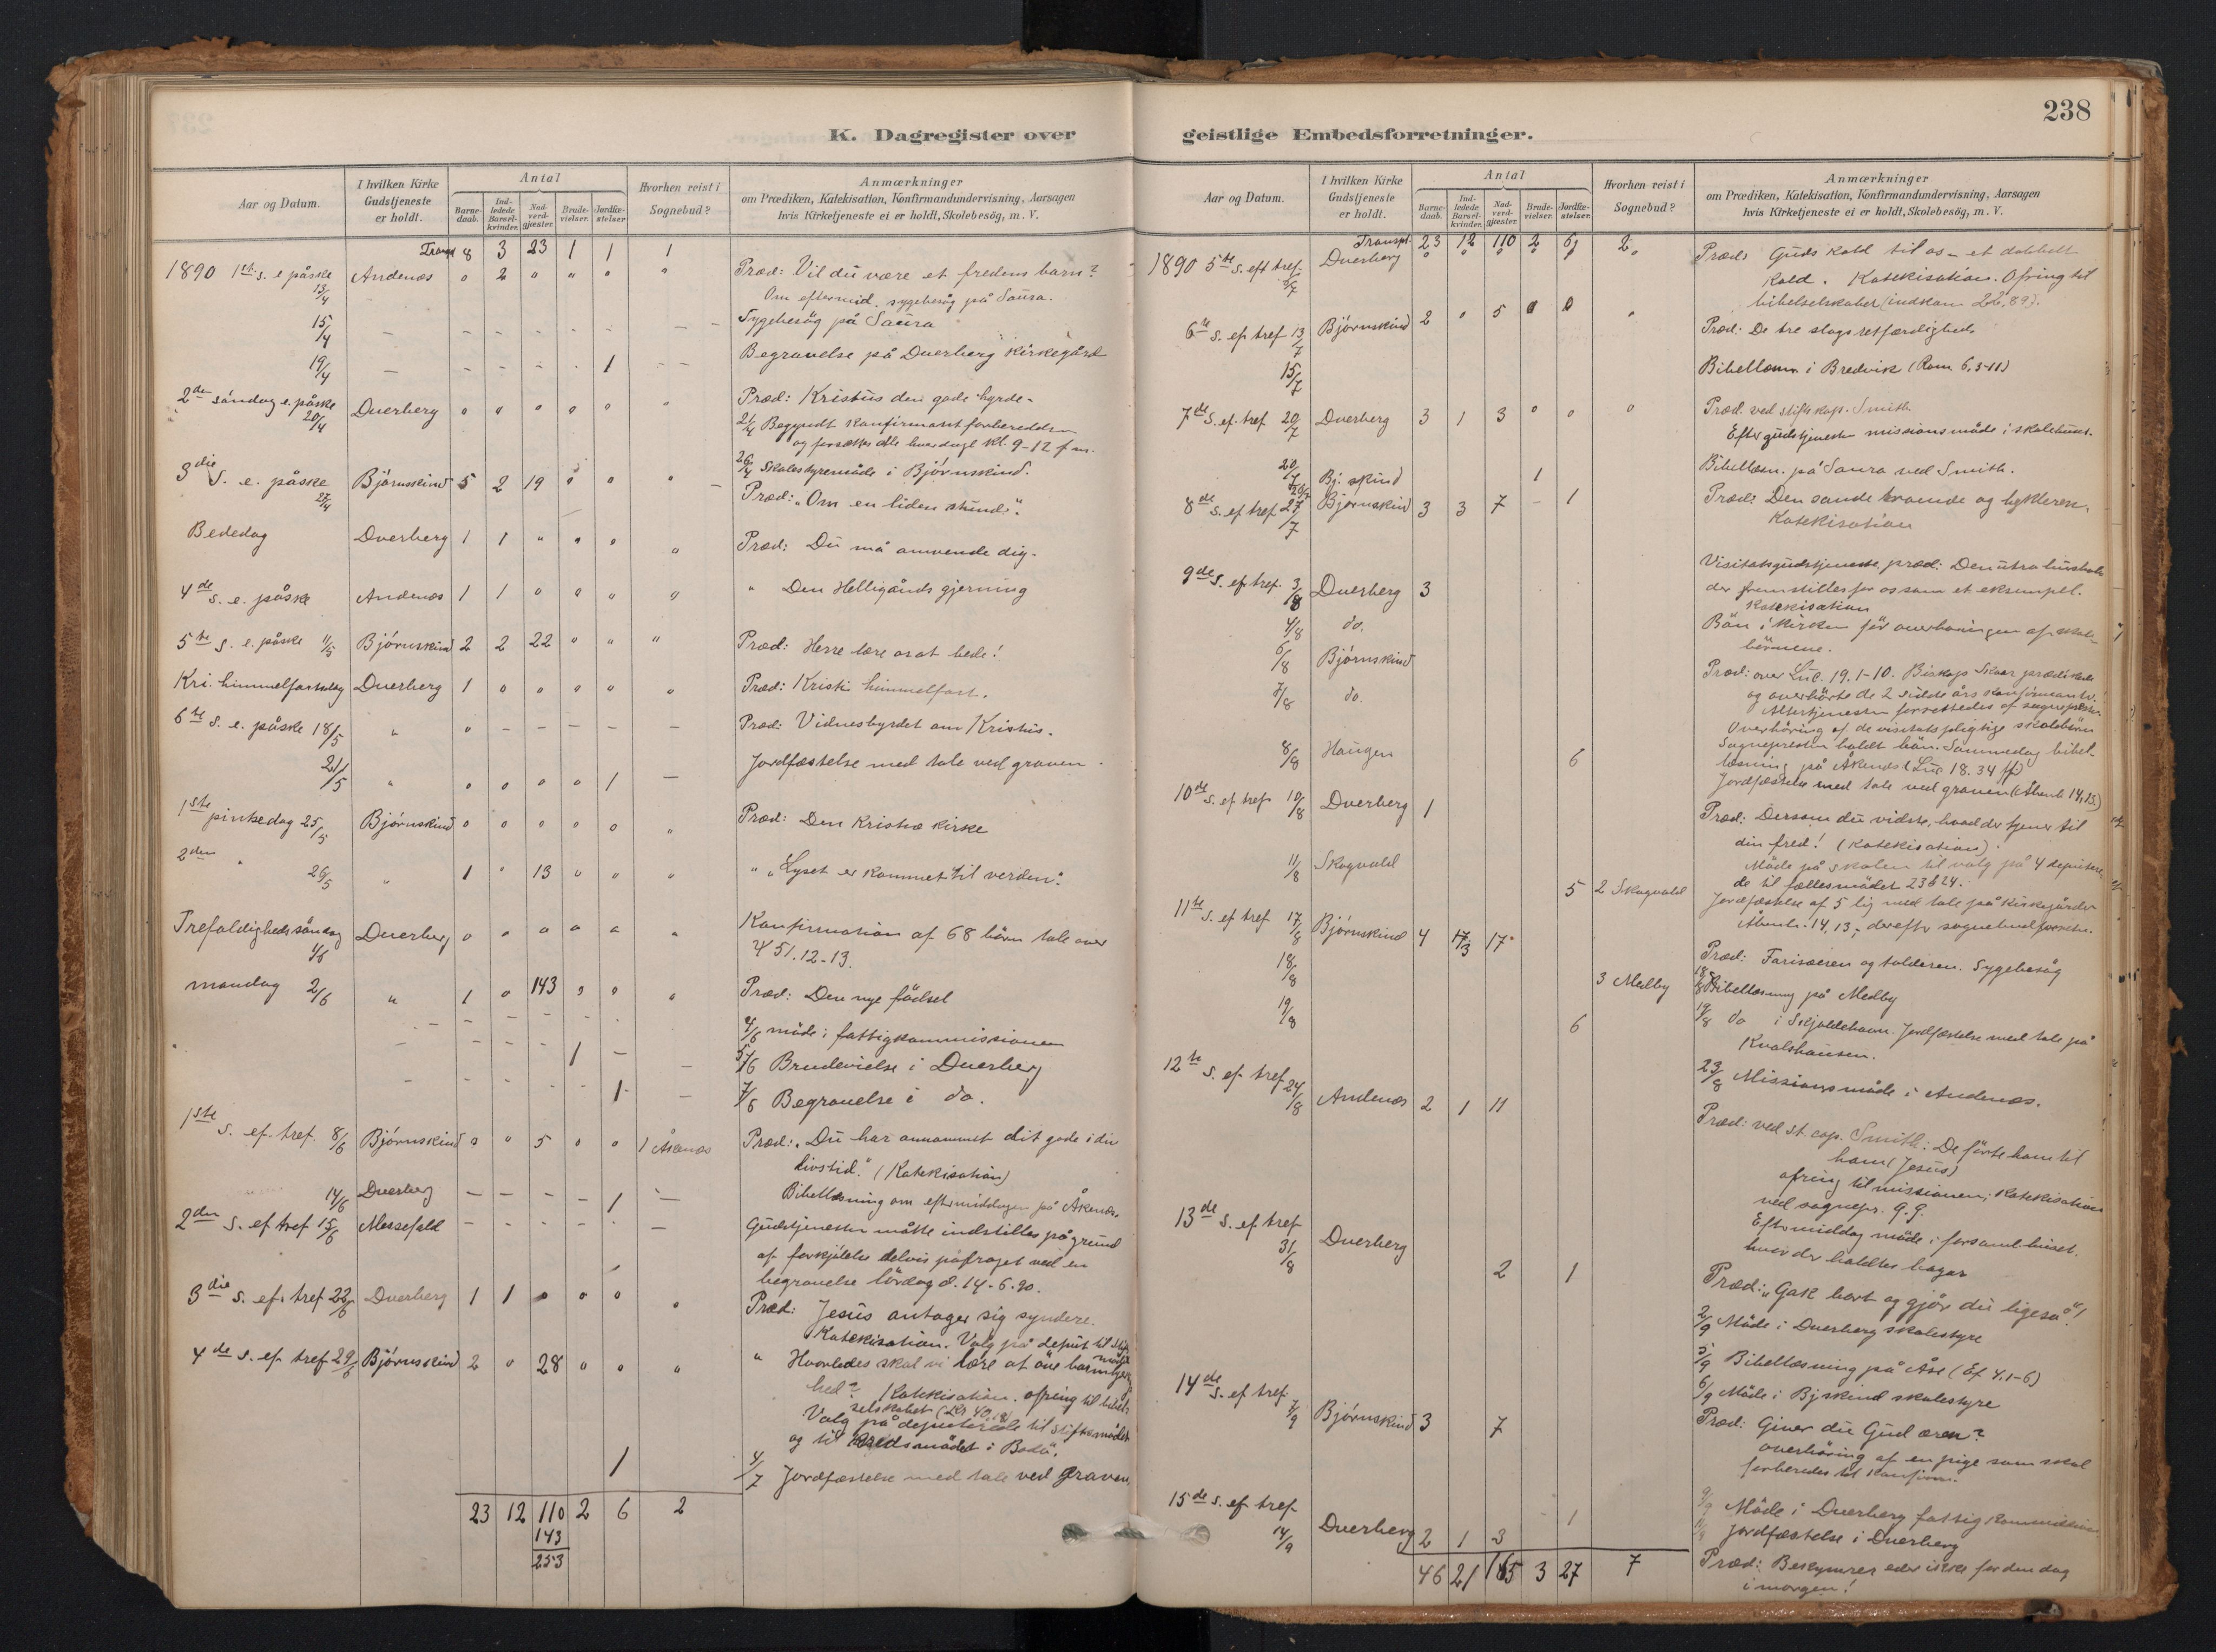 238
K. Dagregister over geistlige Embedsforretninger.
Aar og Datum.
I hvilken Kirke Gudstjeneste er holdt.
Antal
Barne-daab.
Ind-ledede Barsel-kvinder.
Nad-verd-gjæster.
Brude-vielser.
Jordfæ-stelser.
Hvorhen reist i Sognebud?
Anmærkninger
om Prædiken, Katekisation, Konfirmandundervisning, Aarsagen
hvis Kirketjeneste ei er holdt, Skolebesög, m. V.
Transp 8 3 23 1 1 1
1890 1ste s. e påske 13/4 Andenæs 0 2 " " " " Præd: Vil du være et fredens barn?
Om eftermid. sygebesög på Saura.
15/4 — Sygebesög på Saura
19/4 — 1 Begravelse på Dverberg kirkegård
2den söndag e. påske 20/4 Dverberg 0 0 0 0 0 " Præd: Kristus den gode hyrde.
21/4 Begyndt konfirmantforberedelsen
og forsættes alle hverdage kl. 9-12 fm.
26/4 Skolestyremöde i Björnskind.
3die S. e. påske 27/4 Björnskind 5 2 19 0 0 " Præd: "Om en liden stund".
Bededag Dverberg 1 1 " " " " Præd: Du må omvende dig.
4de s. e. påske Andenæs 1 1 0 0 " " " Den Helligånds gjerning
5te s. e. påske 11/5 Björnskind 2 2 22 " " " Præd: Herre lære os at bede!
Kri. himmelfartsdag Dverberg 1 0 0 0 0 " Præd: Kristi himmelfart.
6te s. e. påske 18/5 " 0 – – – – – Præd: Vidnesbyrdet om Kristus.
21/5 " 0 0 0 0 1 — Jordfæstelse med tale ved graven.
1ste pintsedag 25/5 Björnskind 0 0 0 0 0 " Præd: Den Kristne kirke
2den " 26/5 " 1 " 13 0 0 " " "Lyset er kommet til verden".
Trefoldigheds söndag 1/6 Dverberg 0 0 0 0 0 " Konfirmation af 68 börn tale over
ψ 51.12-13.
mandag 2/6 " 1 0 143 0 0 " Præd: Den nye födsel
4/6 möde i fattigkommissionen
1 – 5/6 Brudevielse i Dverberg
1 – 7/6 Begravelse i do.
1ste s. ef. tref. 8/6 Björnskind 0 " 5 0 0 1 Åknæs Præd: "Du har annammet dit gode i din
livstid." (Katekisation)
Bibellæsning om eftermiddagen på Åknæs.
14/6 Dverberg – – – – 1 —
2den s. ef tref 15/6 Messefald Gudstjenesten måtte indstilles på grund
af forkjölelse delvis påfraget ved en
begravelse lördag d. 14-6-90.
3die s. ef. tref 22/6 Dverberg 1 1 0 0 0 " Præd: Jesus antager sig syndere.
Katekisation. Valg på deput til Stifts
möde
4de s. ef tref 29/6 Björnskind 2 0 28 0 0 " " Hvorledes skal vi lære at öve barmhjer
hed? Katekisation. ofring til bibel
selskabet
Valg på deputerede til stiftsmödet
og til mödet i Bodö.
1 4/7 Jordfæstelse med tale ved Graven.
23 12 110 2 6 2
143
253
Aar og Datum.
I hvilken Kirke Gudstjeneste er holdt.
Antal
Barne-daab.
Ind-ledede Barsel-kvinder.
Nad-verd-gjæster.
Brude-vielser.
Jordfæ-stelser.
Hvorhen reist i Sognebud?
Anmærkninger
om Prædiken, Katekisation, Konfirmandundervisning, Aarsagen
hvis Kirketjeneste ei er holdt, Skolebesög, m. V.
Transpt. 23 12 110 2 6 2
1890 5te s. eft tref. 6/7 Dverberg " " " " " " Præd: Guds kald til os – et dobbelt
kald. Katekisation. Ofring til
bibelselskabet (indkom 22,89).
6te s. ef tref 13/7 Björnskind 2 0 5 0 0 " Præd: De tre slags retfærdighed.
15/7 Bibellæsn i Bredvik (Rom. 6, 3-11)
7de S. ef. tref 20/7 Dverberg 3 1 3 0 0 0 Præd. ved stiftskap. Smith.
Efter gudstjenesten missionsmöde i skolehuset.
Bibellæsn. på Saura ved Smith.
20/7 Bj. skind 1
8de s. ef tref 27/7 Björnskind 3 3 7 – 1 Præd: Den sande troende og hykleren.
Katekisation
9de s. ef tref. 3/8 Dverberg 3 Visitatsgudstjeneste, præd: Den utro husholder
der fremstilles for os som et eksempel.
Katekisation
4/8 do. Bön i kirken för overhöringen af skole-
börnene.
6/8 Björnskind Præd: over Luc. 19, 1-10. Biskop Skaar prædikede
og overhörte de 2 sidste års konfirmanter.
7/8 do. Altertjenesten forrettedes af sognepresten.
Overhöring af de visitatspligtige skolebörn
Sognepresten holdt bön. Sammedag bibel-
læsning på Åknæs (Luc 18. 34 ff)
8/8 Haugen 6 Jordfæstelse med tale ved graven (Åbenb 14,13)
10de s. ef tref 10/8 Dverberg 1 Præd: Dersom du vidste, hvad der tjener til
din fred! (Katekisation)
11/8 Skogvold Möde på skolen til valg på 4 deputere
de til fællesmödet 23 & 24.
5 2 Skogvold Jordfæstelse af 5 lig med tale på kirkegården
Åbenb. 14, 13; derefter sognebud
11te s. ef tref 17/8 Björnskind 4 3 17 Præd: Farisæeren og tolderen. Sygebesög
18/8 3 Medby 18/8 Bibellæsning på Medby
19/8 6 19/8 do i Skjoldehavn. Jordfæstelse med tale på
Kvalshausen.
23/8 Missionsmöde i Andenæs.
12te s. ef tref 24/8 Andenæs 2 1 11 Præd: ved st. cap. Smith: De förte ham til
ham (Jesus)
ofring til missionen; Katekisation
ved sognepr. G.G.
Eftermiddag möde i forsaml. huset,
hvor der holdtes bazar
13de s. ef tref 31/8 Dverberg 2 1 Præd: "Gak bort og gjör du ligeså"!
2/9 Möde i Dverberg skolestyre
5/9 Bibellæsning på Åse (Ef. 4, 1-6)
6/9 Möde i Bjskind skolestyre
14de s. ef tref 7/9 Björnskind 3 7 Præd: Giver du Gud æren?
overhöring af en pige som skal
forberedes til konfirm.
9/9 Möde i Dverberg fattigkommission
1 Jordfæstelse i Dverberg
15de s. ef tref 14/9 Dverberg 2 1 3 Præd: Bekymrer eder ikke for den dag
i morgen!
46 21 165 3 27 7